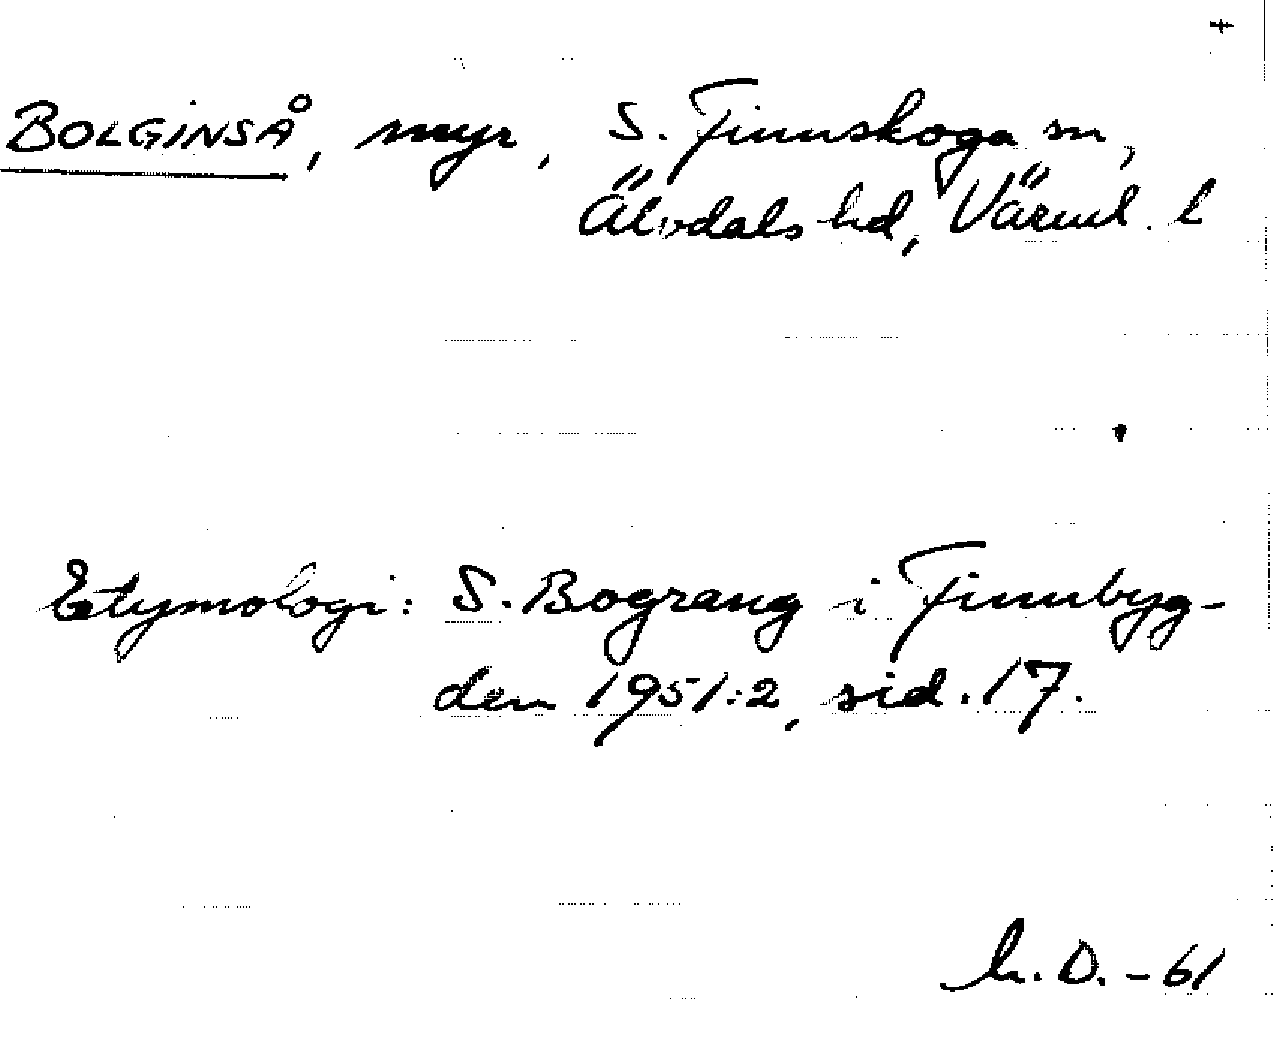 BOLGINSÅ, myr, S. Finnskoga sn,
Älvdals hd, Värml. l
Etymologi: S. Bograng i Finnbyg-
den 1951:2, sid. 17.
h. D. - 61